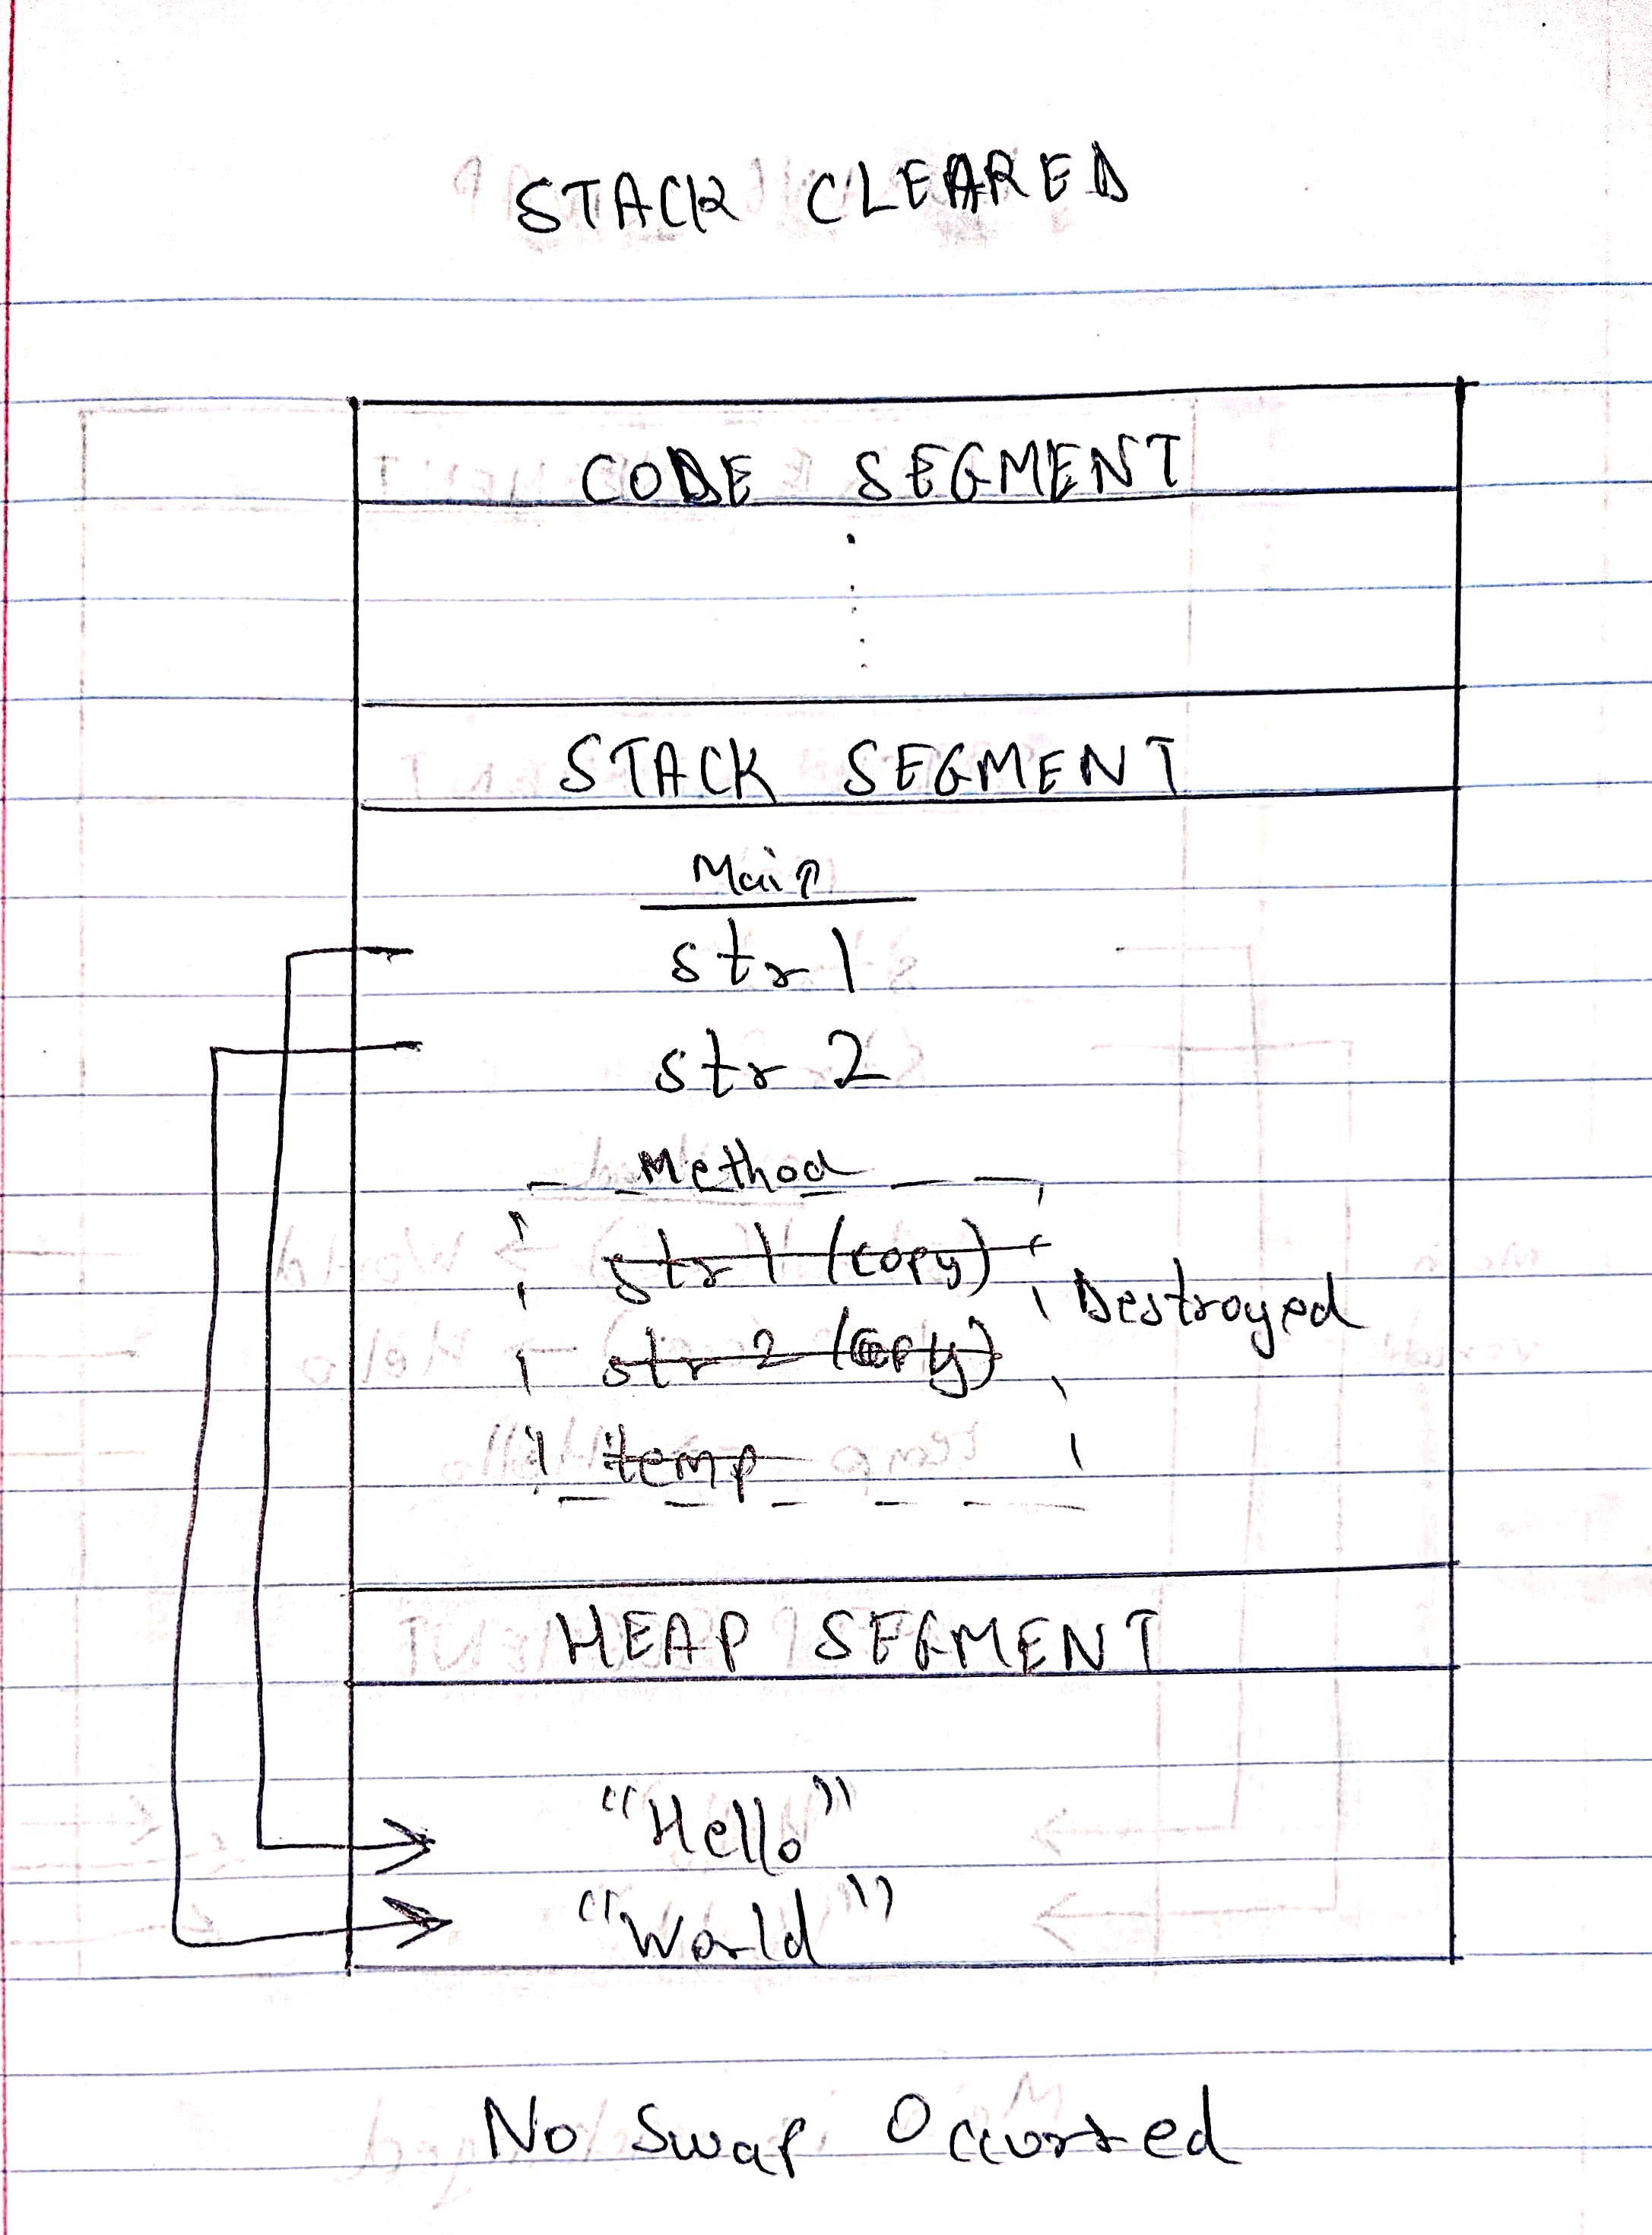 STACK CLEARED
CODE SEGMENT
STACK SEGMENT
Main
str1
str 2
Method
str 1 (copy)
Destroyed
str 2 (copy)
temp
HEAP SEGMENT
"Hello"
"World"
No Swap Occurred